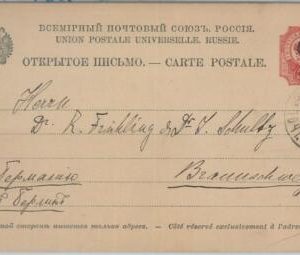 ВСЕМІРНЫЙ ПОЧТОВЫЙ СОЮЗЪ. РОССІЯ.
UNION POSTALE UNIVERSELLE. RUSSIE.
ОТКРЫТОЕ ПИСЬМО. — CARTE POSTALE.
Herrn
Dr. R. Frühling & Dr. J. Schultz
Германію
Берлинъ
Braunschweig
ной сторонѣ пишется только адресъ. — Côté réservé exclusivement à l'adre